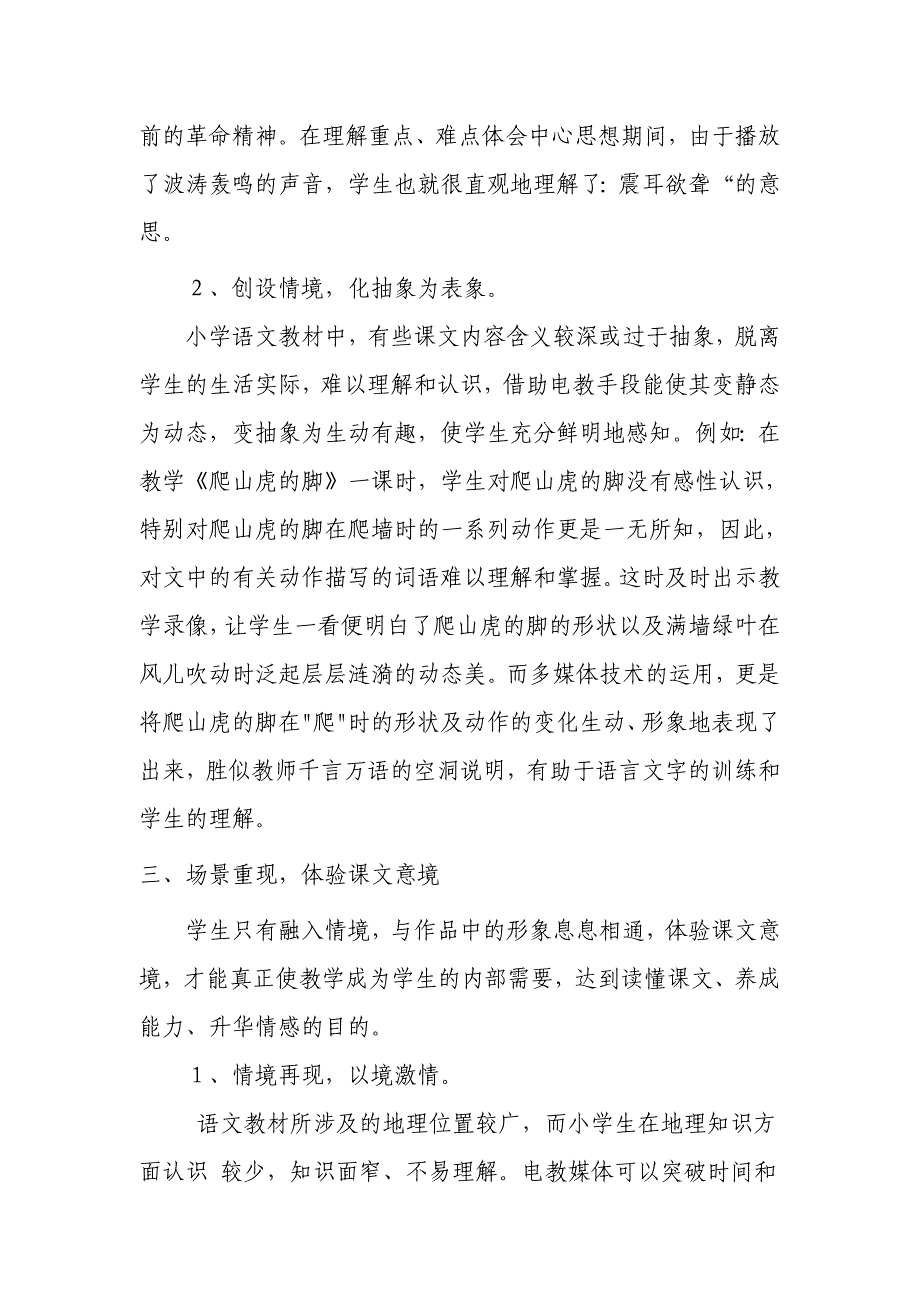 前的革命精神。在理解重点、难点体会中心思想期间，由于播放
了波涛轰鸣的声音，学生也就很直观地理解了：震耳欲聋“的意
思。
２、创设情境，化抽象为表象。
小学语文教材中，有些课文内容含义较深或过于抽象，脱离
学生的生活实际，难以理解和认识，借助电教手段能使其变静态
为动态，变抽象为生动有趣，使学生充分鲜明地感知。例如：在
教学《爬山虎的脚》一课时，学生对爬山虎的脚没有感性认识，
特别对爬山虎的脚在爬墙时的一系列动作更是一无所知，因此，
对文中的有关动作描写的词语难以理解和掌握。这时及时出示教
学录像，让学生一看便明白了爬山虎的脚的形状以及满墙绿叶在
风儿吹动时泛起层层涟漪的动态美。而多媒体技术的运用，更是
将爬山虎的脚在"爬"时的形状及动作的变化生动、形象地表现了
出来，胜似教师千言万语的空洞说明，有助于语言文字的训练和
学生的理解。
三、场景重现，体验课文意境
学生只有融入情境，与作品中的形象息息相通，体验课文意
境，才能真正使教学成为学生的内部需要，达到读懂课文、养成
能力、升华情感的目的。
１、情境再现，以境激情。
语文教材所涉及的地理位置较广，而小学生在地理知识方
面认识 较少，知识面窄、不易理解。电教媒体可以突破时间和